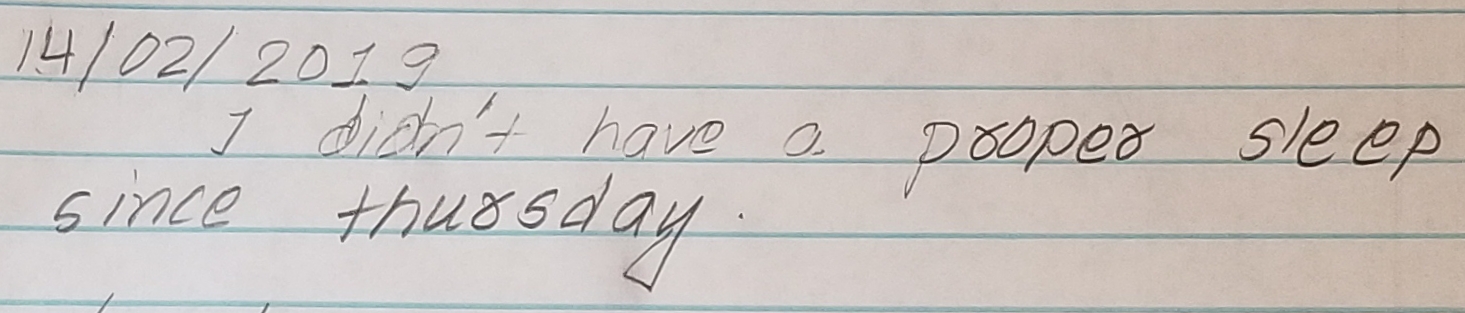 14/02/2019
I didn't have a proper sleep
since thursday.